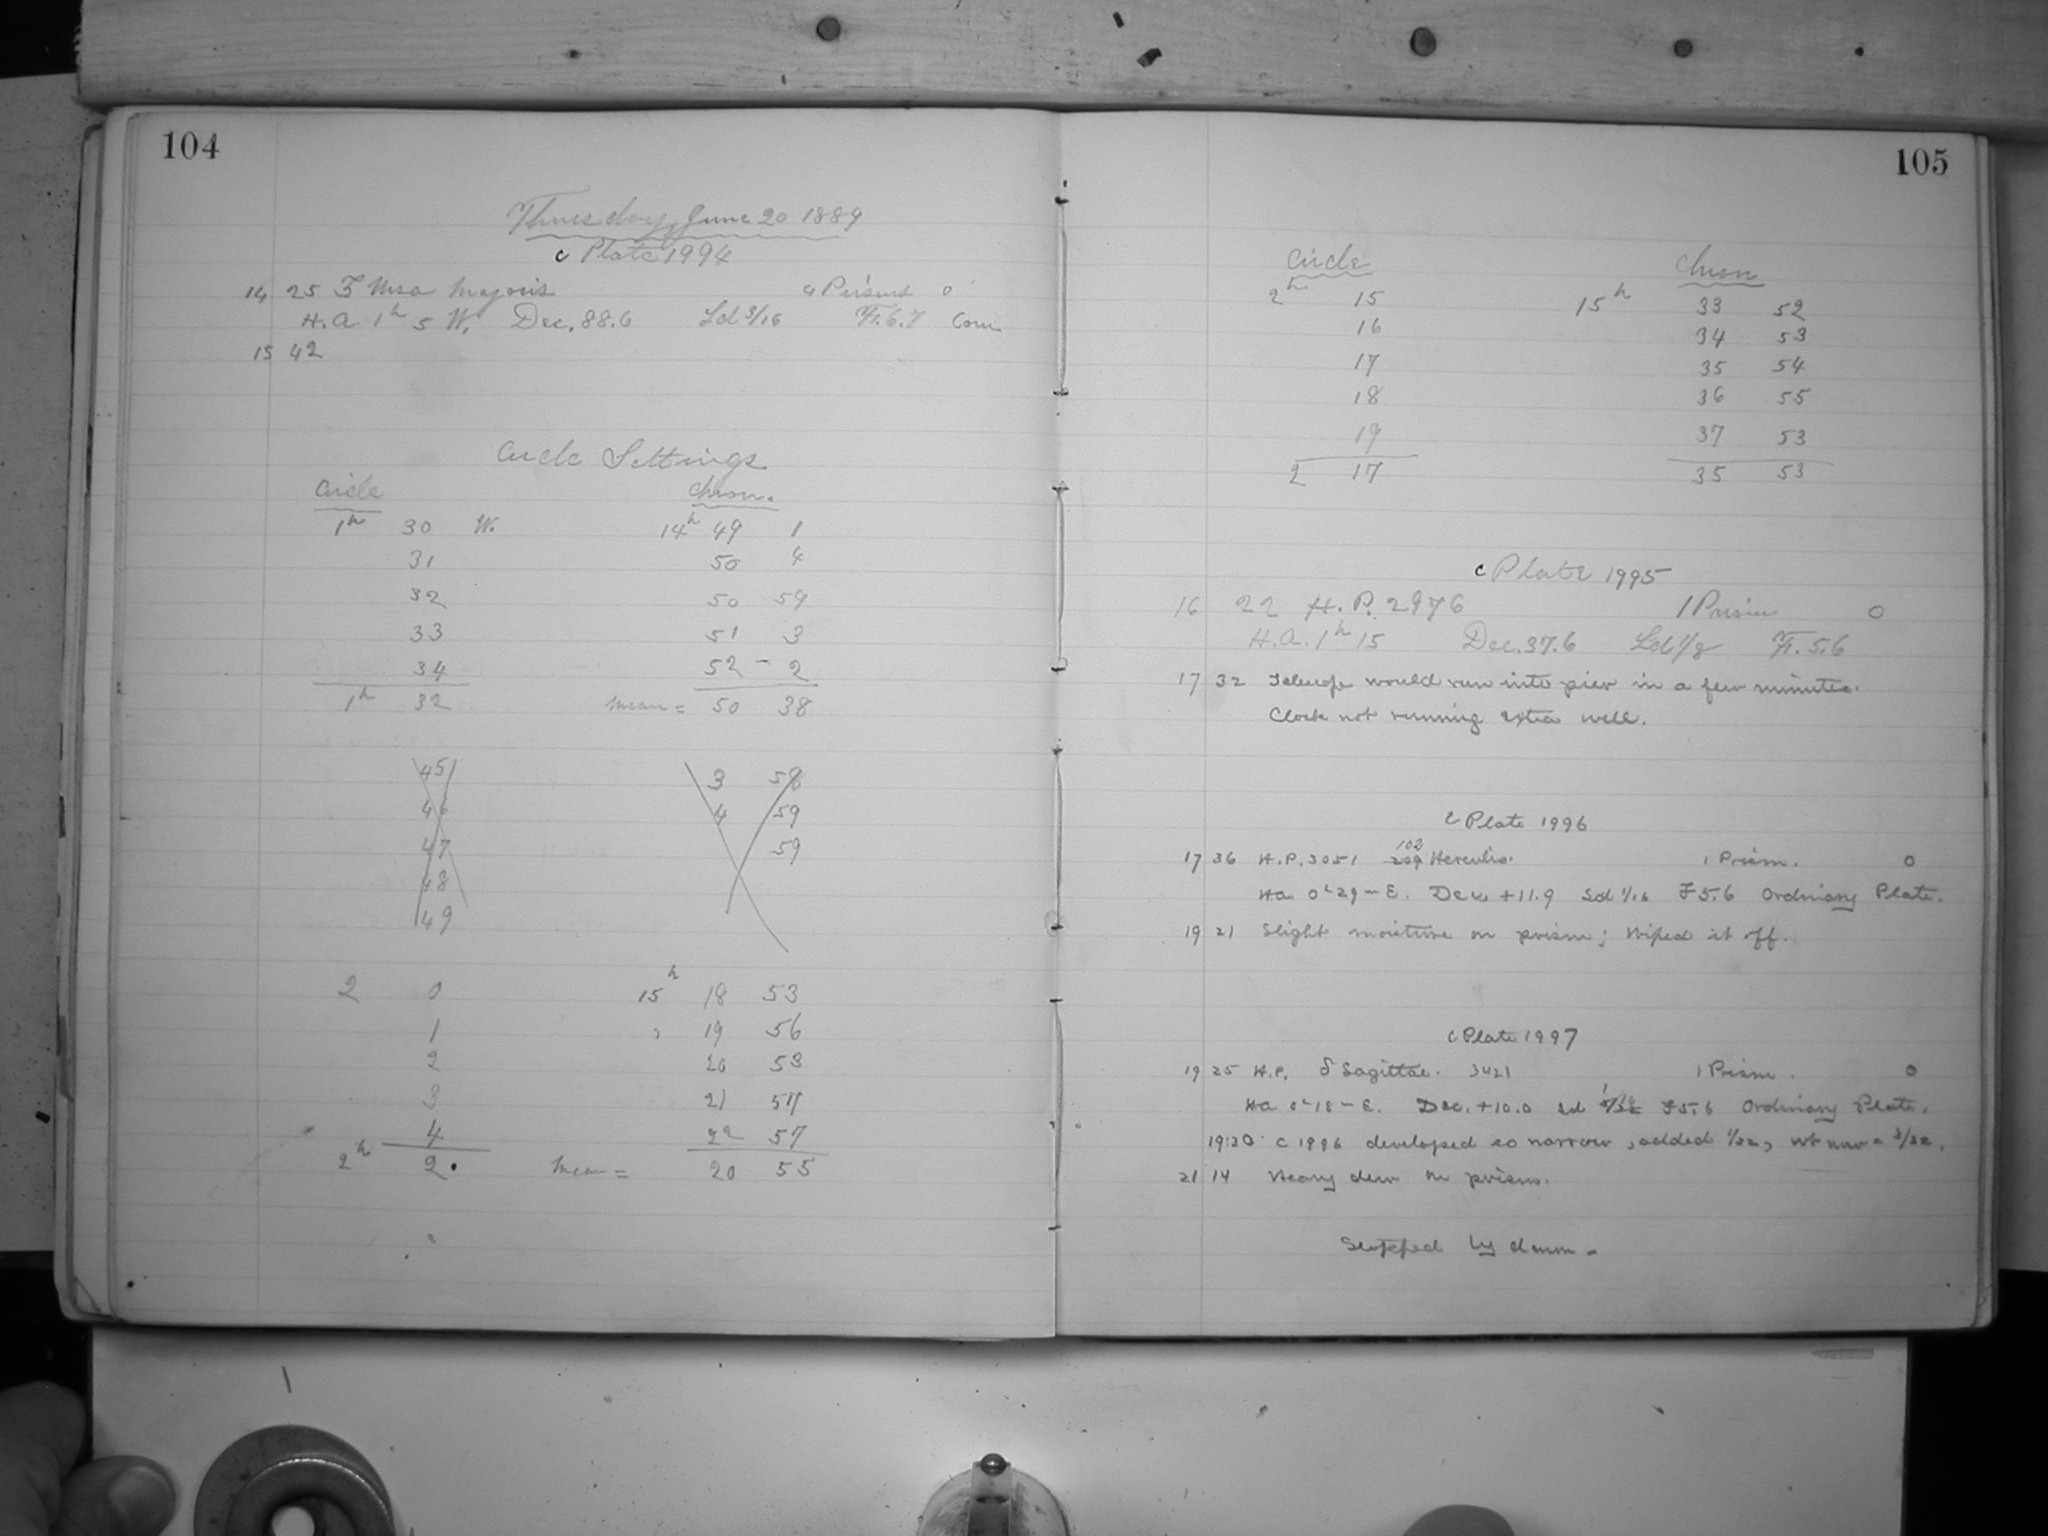 104
Thursday, June 20 1889
c Plate 1994
14 25 ζ Ursa Majoris 4 Prisms 0
H.A. 1h 5 W. Dec. 88.6 Sd 3/16 Fr. 6.7 Com
15 42
Circle Settings
Circle Chron.
1h 30 W. 14h 49 1
31 50 4
32 50 59
33 51 3
34 52 - 2
1h 32 mean = 50 38
45 3 58
46 4 59
47 59
48
49
2 0 15h 18 53
1 19 56
2 20 53
3 21 57
4 22 57
2h 2. Mean = 20 55
105
Circle Chron
2h 15 15h 33 52
16 34 53
17 35 54
18 36 55
19 37 53
2 17 35 53
c Plate 1995
16 22 H.P. 2976 1 Prism 0
H.A. 1h 15 Dec. 37.6 Sd 1/8 Fr. 5.6
17 32 Telescope would run into pier in a few minutes.
Clock not running extra well.
c Plate 1996
17 36 H.P. 3051 102 Herculis. 1 Prism. 0
Ha 0h 29m E. Dec +11.9 Sd 1/16 F 5.6 Ordinary Plate.
19 21 Slight moisture on prism; wiped it off.
c Plate 1997
19 25 H.P. δ Sagittae. 3421 1 Prism. 0
Ha 0h 18m E. Dec. +10.0 Sd F 5.6 Ordinary Plate.
19:30 c 1996 developed so narrow, added 1/32, wt now = 3/32.
21 14 Heavy dew on prism.
Stopped by dawn.